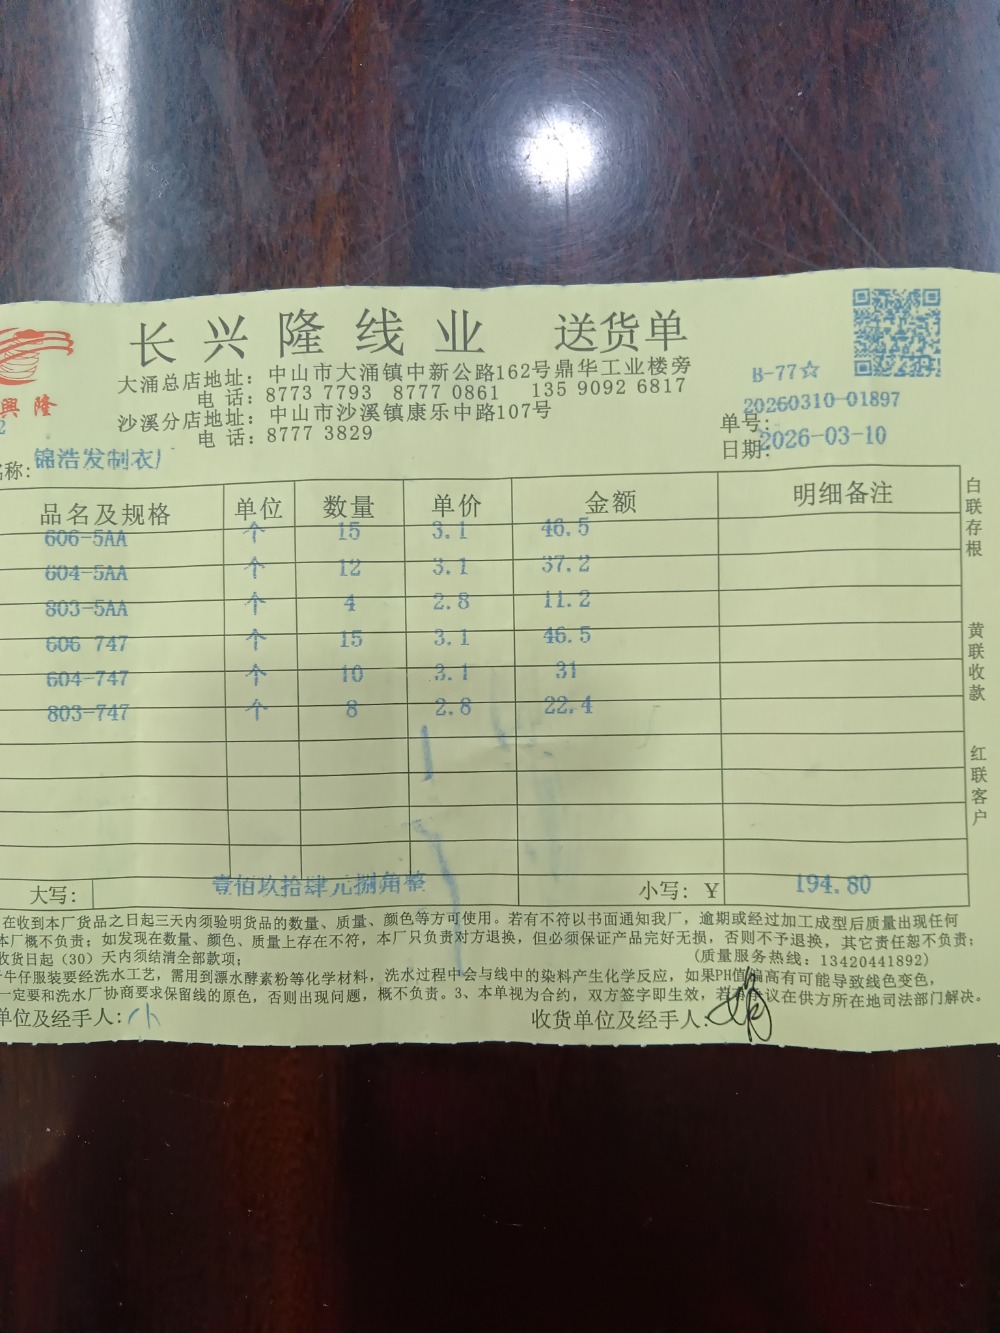 長興隆线业 送货单
大涌总店地址：中山市大涌镇中新公路162号鼎华工业楼旁
电 话：8773 7793 8777 0861 135 9092 6817
沙溪分店地址：中山市沙溪镇康乐中路107号
电 话：8777 3829
B-77☆
興 隆
2
单号：20260310-01897
日期：2026-03-10
名称：锦浩发制衣厂
品名及规格 单位 数量 单价 金额 明细备注
606-5AA 个 15 3.1 46.5
604-5AA 个 12 3.1 37.2
803-5AA 个 4 2.8 11.2
606 747 个 15 3.1 46.5
604-747 个 10 3.1 31
803-747 个 8 2.8 22.4
大写：壹佰玖拾肆元捌角整 小写：￥ 194.80
白联存根
黄联收款
红联客户
在收到本厂货品之日起三天内须验明货品的数量、质量、颜色等方可使用。若有不符以书面通知我厂，逾期或经过加工成型后质量出现任何
本厂概不负责；如发现在数量、颜色、质量上存在不符，本厂只负责对方退换，但必须保证产品完好无损，否则不予退换，其它责任恕不负责；
收货日起（30）天内须结清全部款项； (质量服务热线：13420441892)
牛仔服装要经洗水工艺，需用到漂水酵素粉等化学材料，洗水过程中会与线中的染料产生化学反应，如果PH值偏高有可能导致线色变色，
一定要和洗水厂协商要求保留线的原色，否则出现问题，概不负责。3、本单视为合约，双方签字即生效，若有争议在供方所在地司法部门解决。
单位及经手人： 收货单位及经手人：